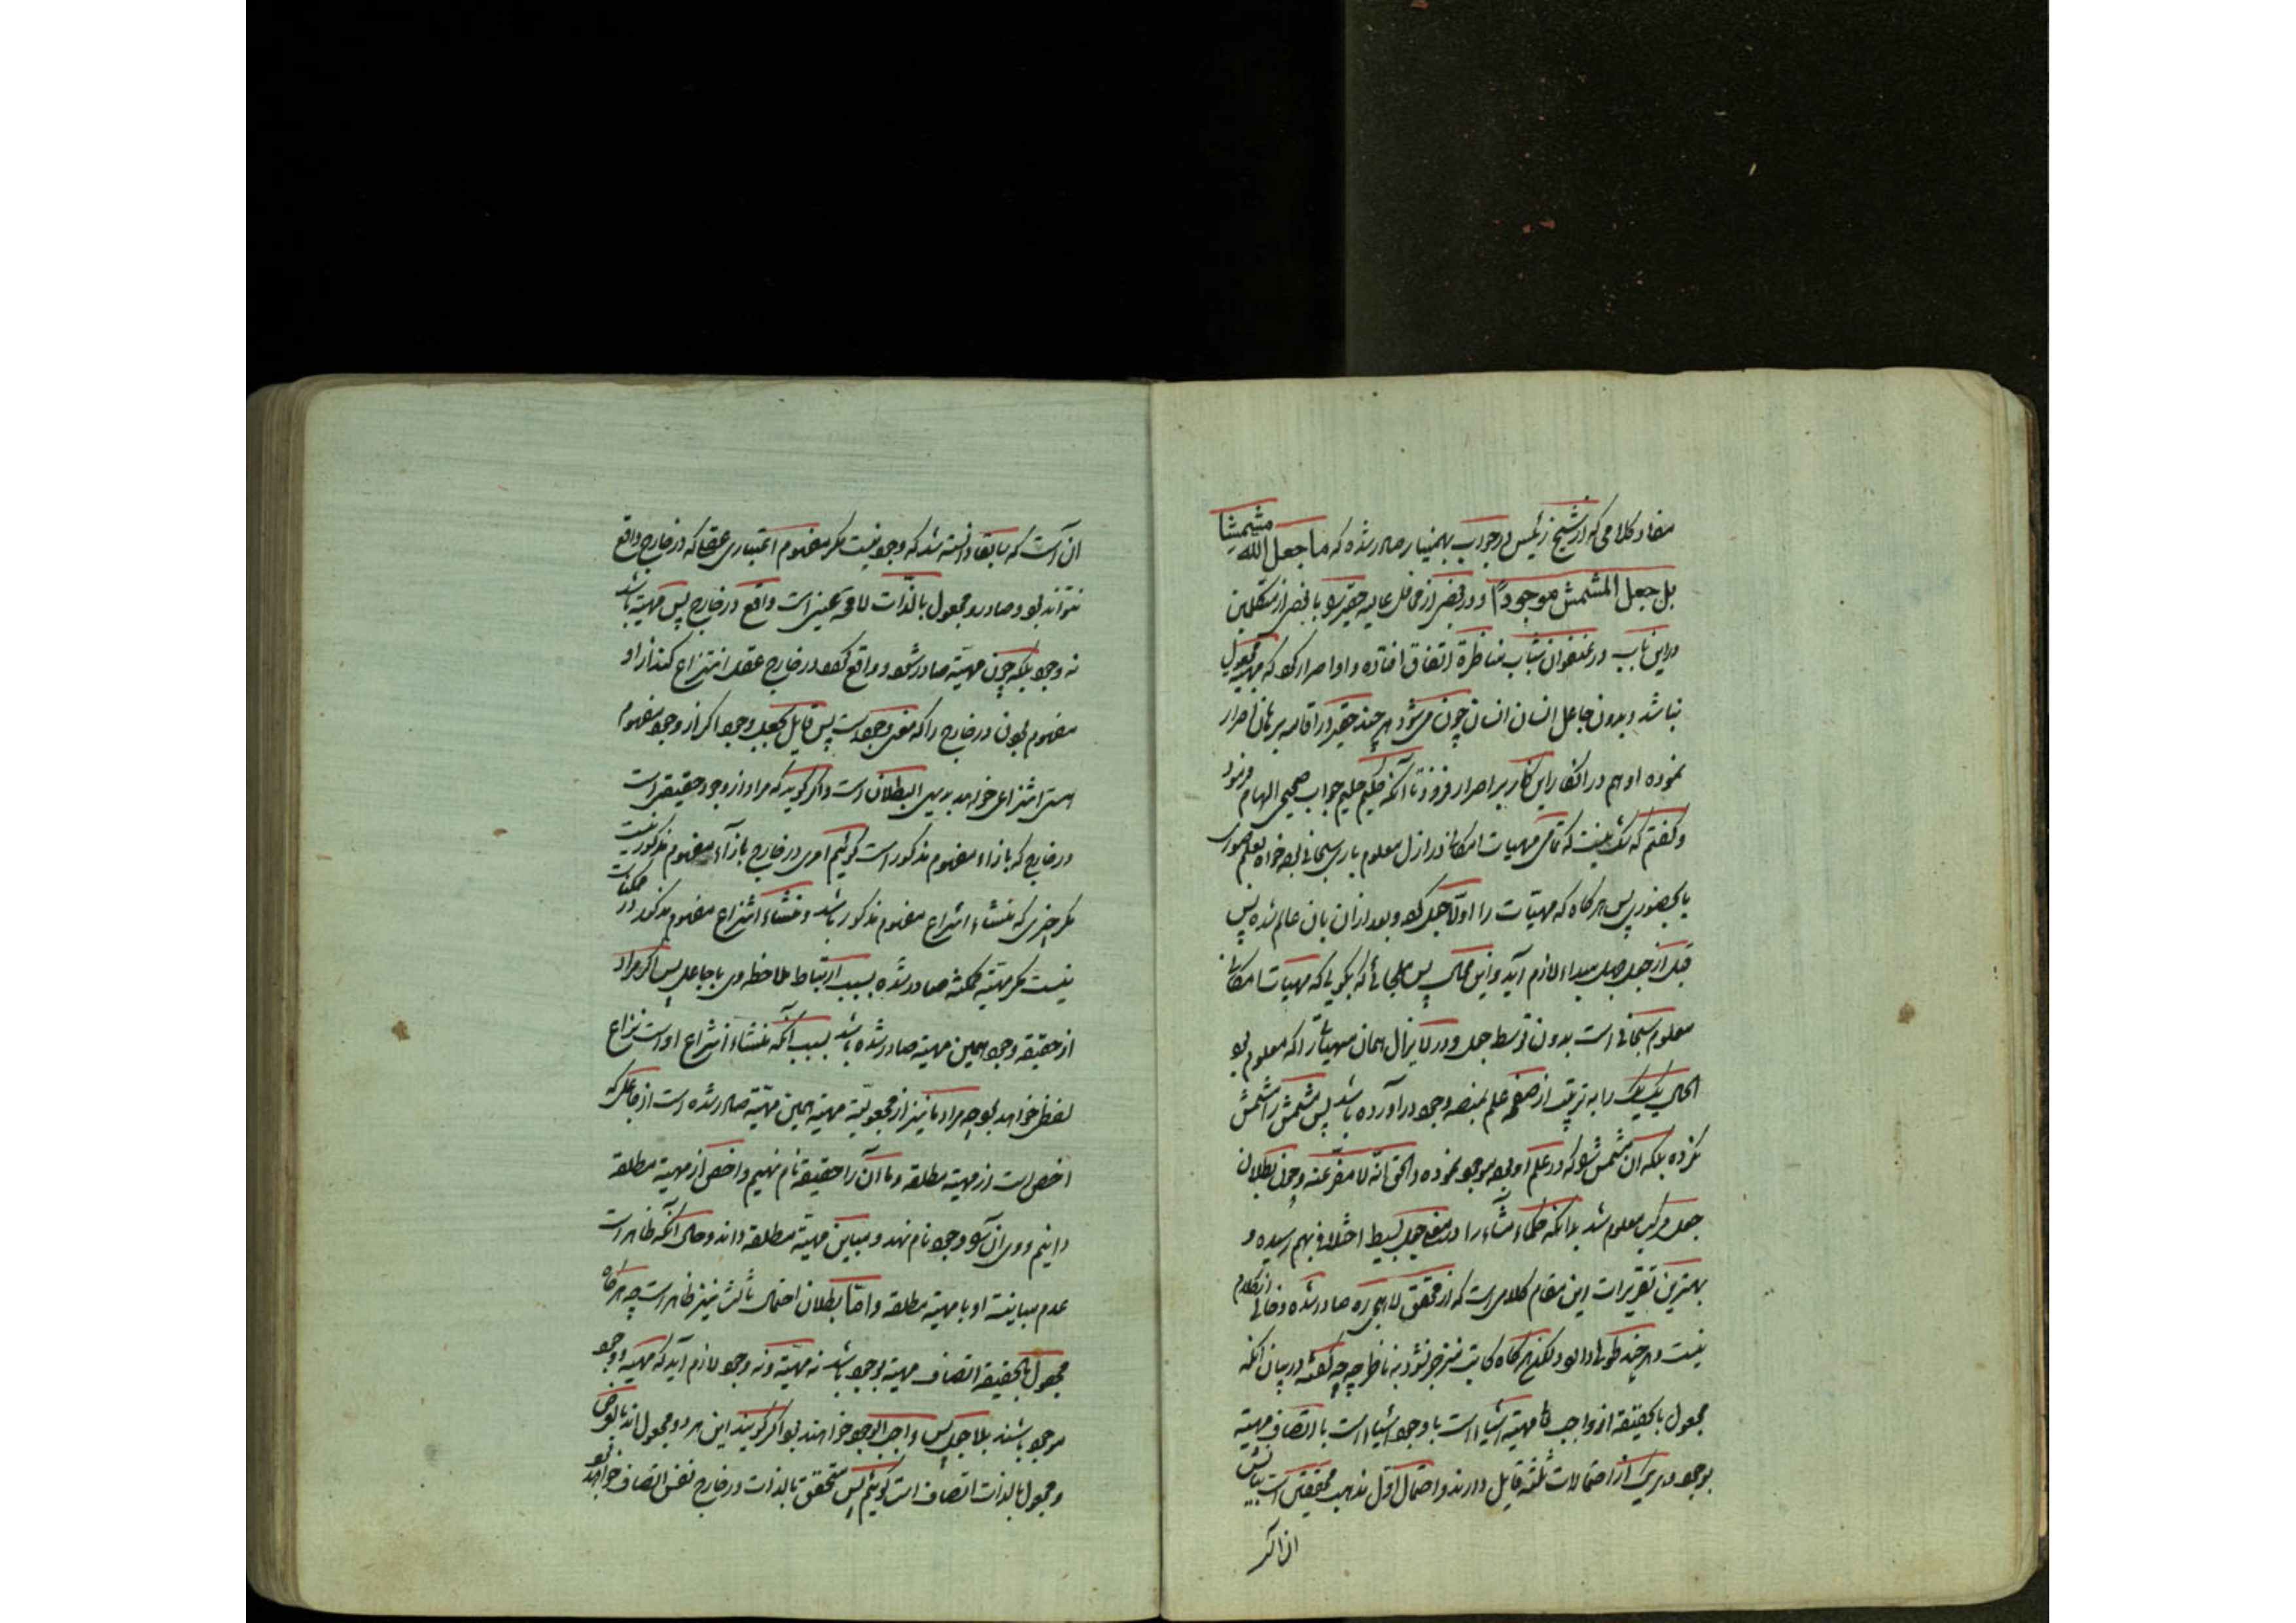 مفاد کلامی که از شیخ رئیس در جواب بهمنیار صادر شده که ما جعل الله مشمشا
بل جعل المشمش موجوداً و در بعضی از محافل عالیه حقیر را با بعضی از متکلمین
در این باب در عنفوان شباب مناظرة اتفاق افتاده و او اصرار کرد که مهیة مجعول
نباشد و بدون جاعل انسان انسان چون می‌شود هر چند حقیر در اقامه برهان اصرار
نموده او هم در انکار این کار بر اصرار فزود تا آنکه حکیم علیم جواب صحیحی الهام فرمود
و گفتم که شک نیست که تمامی مهیات امکانی در ازل معلوم باری سبحانی بود خواه بعلم صوری
یا بحضور پس هرگاه که مهیات را اولاً جعل کرد و بعد از آن بان عالم شده پس
قبل از جعل جهل مبداء لازم آید و این محال پس ملجائی که بگویی که مهیات امکانی
معلوم سبحانی است بدون توسط جعل و در لایزال همان مهیات را که معلوم بود
الحال یک یک را به ترتیب از صقع علم بمنصه وجود در آورده باشد پس مشمش را مشمش
نکرده بلکه ان مشمش را که در علم او بود موجود نموده والحق انّه لا مفرّ عنه و چون بطلان
جعل مرکب معلوم شد بدانکه حکماء مشاء را در معنی جعل بسیط اختلافی بهم رسیده و
بهترین تقریرات این مقام کلامی است که از محقق لاهیجی ره صادر شده و خالی از کلام
نیست و هر چند طولی دارد لکن هرگاه کاتب منزجر نشود به ناظر چه چه گفته در بیان آنکه
مجعول بالحقیقه از واجب تع مهیة اشیاء است یا وجود اشیاء است یا اتصاف مهیة
بوجود و هر یک از احتمالات ثلثه قایل دارند و احتمال اوّل مذهب محققین است بیانش
ان است
ان است که سابقا دانسته شد که وجود نیست مگر مفهوم اعتباری عقلی که در خارج واقع
نتواند بود و صادر و مجعول بالذّات لا محه عینی است واقع در خارج پس مهیة باشد
نه وجود بلکه چون مهیّة صادر شود و واقع گردد در خارج عقل انتزاع کند از او
مفهوم بودن در خارج را که معنی وجود است پس قایل بجعل وجود اگر از وجود مفهوم
انتزاعی خواهد بدیهی البطلان است و اگر گوید که مراد از وجود حقیقی است
در خارج که بازاء مفهوم مذکور است گوئیم امری در خارج بازآء مفهوم مذکور نیست
مگر چیزی که منشاء انتزاع مفهوم مذکور باشد و منشاء انتزاع مفهوم مذکور در ممکنات
نیست مگر مهیّة ممکنه صادر شده بسبب ارتباط ملاحظه وی با جاعل پس اگر مراد
از حقیقه وجود همین مهیة صادر شده باشد بسبب آنکه منشاء انتزاع او است نزاع
لفظی خواهد بود چه مراد ما نیز از مجعولیّة مهیة همین مهیّة صادر شده است از جاعل که
اخص است از مهیة مطلقه و ما آن را حقیقه نام نهیم و اخص از مهیة مطلقه
دانیم و وی آن را وجود نام نهد و مباین مهیّة مطلقه داند و حال آنکه ظاهر است
عدم مباینة او با مهیة مطلقه و امّا بطلان احتمال ثالث نیز ظاهر است چه هرگاه
مجعول بالحقیقة اتصاف مهیة بوجود باشد نه مهیّة و نه وجود لازم آید که مهیّة و وجود
موجود باشند بلا جعل پس واجب الوجود خواهند بود اگر گویند این هر دو مجعول اند بالعرض
و مجعول بالذات اتصاف است گوئیم پس متحقق بالذات در خارج نفس اتصاف خواهد بود